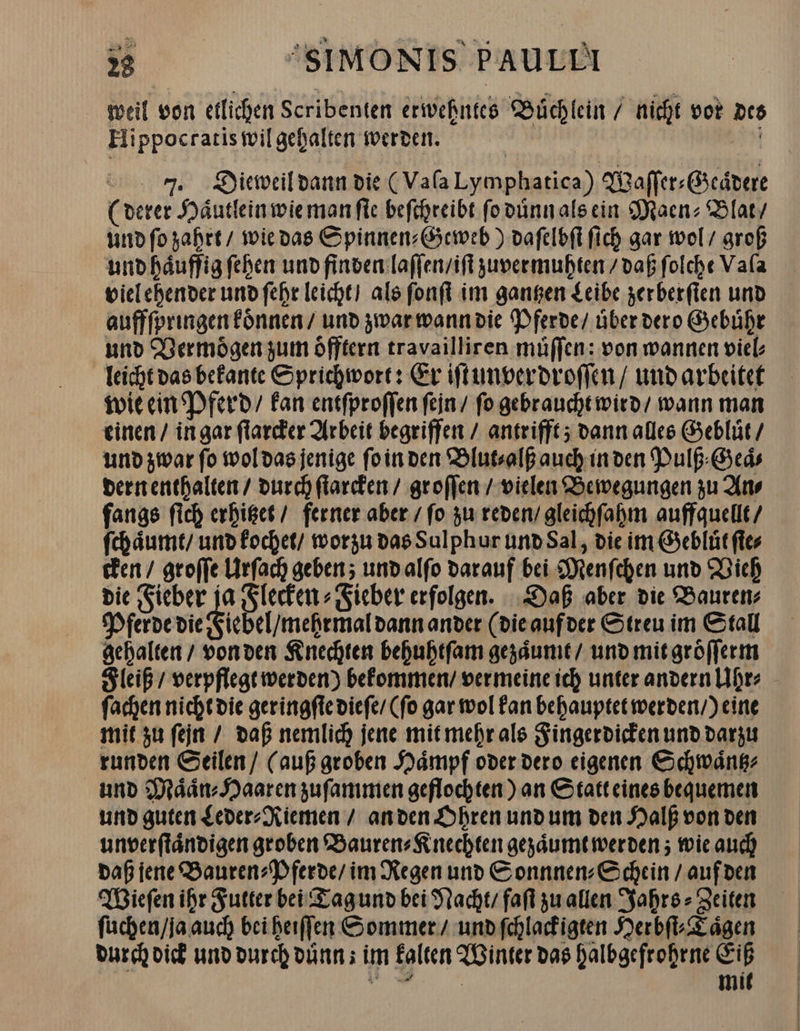 28 SIMONIS PAULLI
weil von etlichen Scribenten erwehntes Buͤchlein / nicht vor des
Hippocratis wil gehalten werden.
7. Dieweil dann die (Vaſa Lymphatica) Waſſer⸗Geaͤdere
(derer Haͤutlein wie man ſie beſchreibt ſo duͤnn als ein Maen⸗Blat /
und ſo zahrt / wie das Spinnen⸗Geweb) daſelbſt ſich gar wol / groß
und haͤuffig ſehen und finden laſſen / iſt zuvermuhten / daß ſolche Vaſa
viel ehender und ſehr leicht / als ſonſt im gantzen Leibe zerberſten und
auffſpringen koͤnnen / und zwar wann die Pferde / uͤber dero Gebuͤhr
und Vermoͤgen zum oͤfftern travailliren muͤſſen: von wannen viel⸗
leicht das bekante Sprichwort: Er iſt unverdroſſen / und arbeitet
wie ein Pferd / kan entſproſſen ſejn / ſo gebraucht wird / wann man
einen / in gar ſtarcker Arbeit begriffen / antrifft; dann alles Gebluͤt /
und zwar ſo wol das jenige ſo in den Blut⸗alß auch in den Pulß⸗Geaͤ⸗
dern enthalten / durch ſtarcken / groſſen / vielen Bewegungen zu An⸗
fangs ſich erhitzet / ferner aber / ſo zu reden / gleichſahm auffquellt /
ſchaͤumt / und kochet / worzu das Sulphur und Sal, die im Gebluͤt ſte⸗
cken / groſſe Urſach geben; und alſo darauf bei Menſchen und Vieh
die Fieber ja Flecken⸗Fieber erfolgen. Daß aber die Bauren⸗
Pferde die Fiebel / mehrmal dann ander (die auf der Streu im Stall
gehalten / von den Knechten behuhtſam gezaͤumt / und mit groͤſſerm
Fleiß / verpflegt werden) bekommen / vermeine ich unter andern Uhr⸗
ſachen nicht die geringſte dieſe / (ſo gar wol kan behauptet werden /) eine
mit zu ſejn / daß nemlich jene mit mehr als Fingerdicken und darzu
runden Seilen / (auß groben Haͤmpf oder dero eigenen Schwaͤntz⸗
und Maͤaͤn⸗Haaren zuſammen geflochten) an Statt eines bequemen
und guten Leder⸗Riemen / an den Ohren und um den Halß von den
unverſtaͤndigen groben Bauren⸗Knechten gezaͤumt werden; wie auch
daß jene Bauren⸗Pferde / im Regen und Sonnnen⸗Schein / auf den
Wieſen ihr Futter bei Tag und bei Nacht / faſt zu allen Jahrs⸗Zeiten
ſuchen / ja auch bei heiſſen Sommer / und ſchlackigten Herbſt⸗Taͤgen
durch dick und durch duͤnn; im kalten Winter das halbgefrohrne Eiß
mit